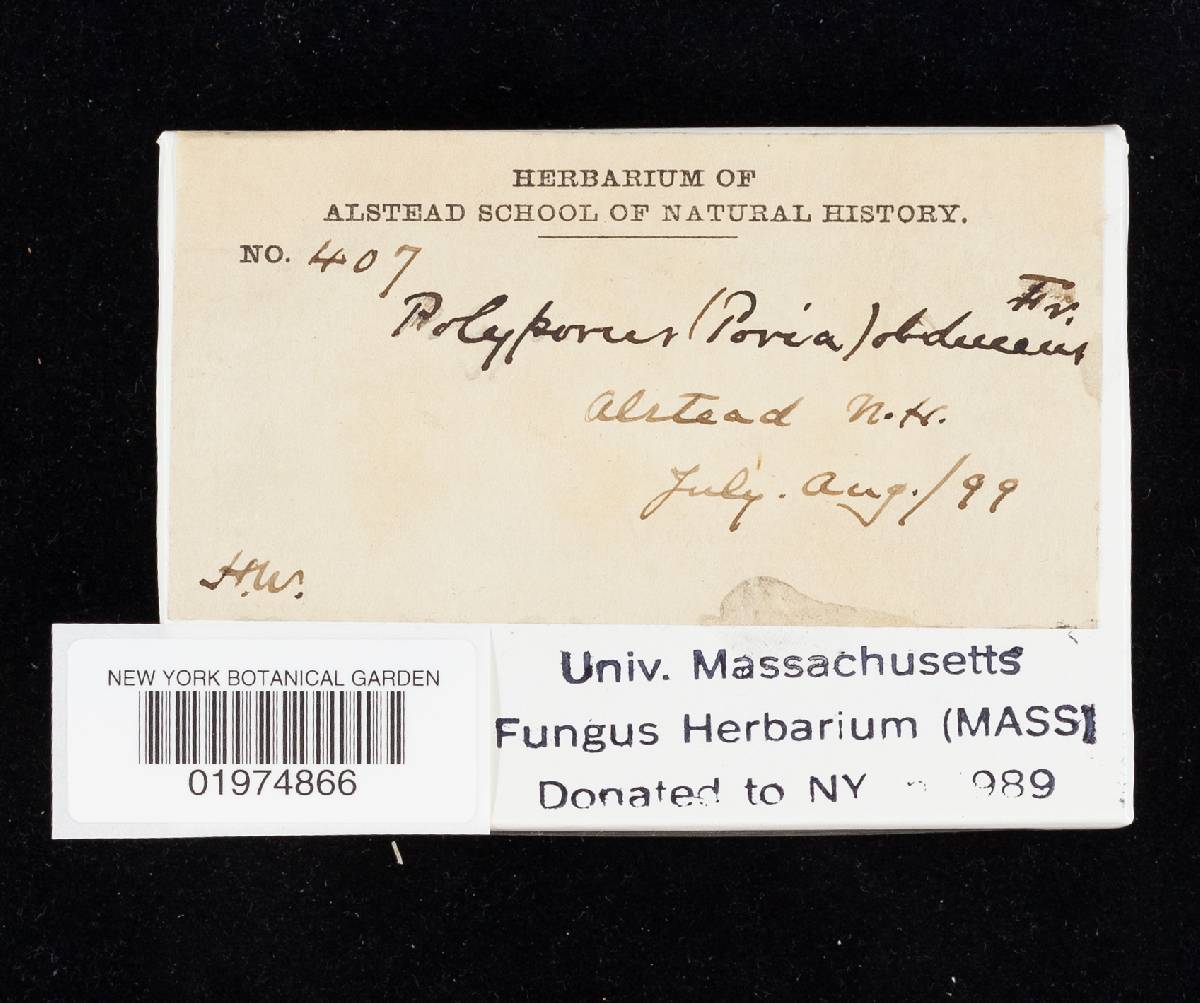 HERBARIUM OF
ALSTEAD SCHOOL OF NATURAL HISTORY.
NO. 407
Polyporus (Poria) obducens Fr.
Alstead N.H.
July. Aug./99
H.W.
NEW YORK BOTANICAL GARDEN
01974866
Univ. Massachusetts
Fungus Herbarium (MASS)
Donated to NY 989